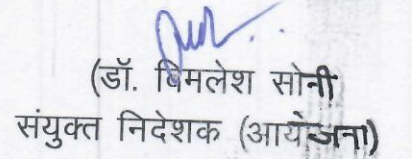 (डॉ. विमलेश सोनी
संयुक्त निदेशक (आयोजना)